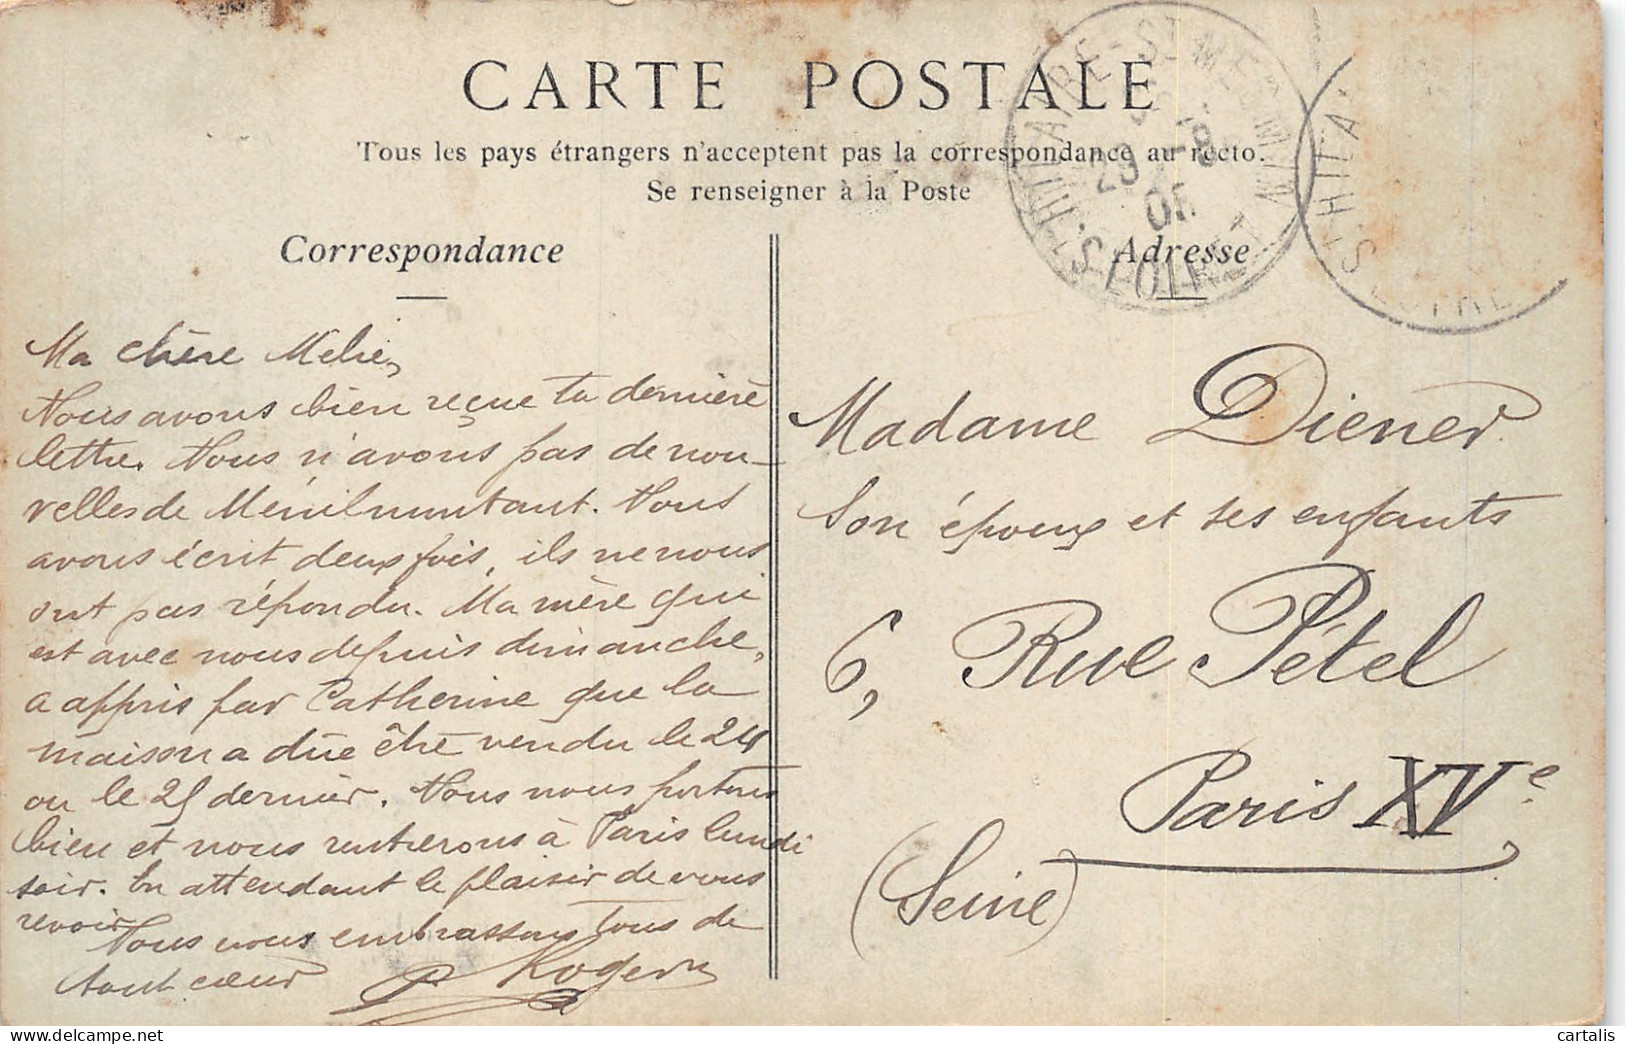 CARTE POSTALE
Tous les pays étrangers n'acceptent pas la correspondance au recto.
Se renseigner à la Poste
Correspondance
Adresse
ST HILAIRE-ST MESMIN
29 -8
05
LOIRET
Ma chère Mélie,
Nous avons bien reçue ta dernière
lettre. Nous n'avons pas de nou-
velles de Ménilmuntant. Nous
avons écrit deux fois, ils ne nous
ont pas répondu. Ma mère qui
est avec nous depuis dimanche,
a appris par Catherine que la
maison a dûe être vendu le 24
ou le 25 dernier. Nous nous portons
bien et nous rentrerons à Paris lundi
soir. En attendant le plaisir de vous
revoir
Nous vous embrassons tous de
tout cœur
Madame Diener
Son époux et ses enfants
6, Rue Pétel
Paris XVe
(Seine)
cartalis